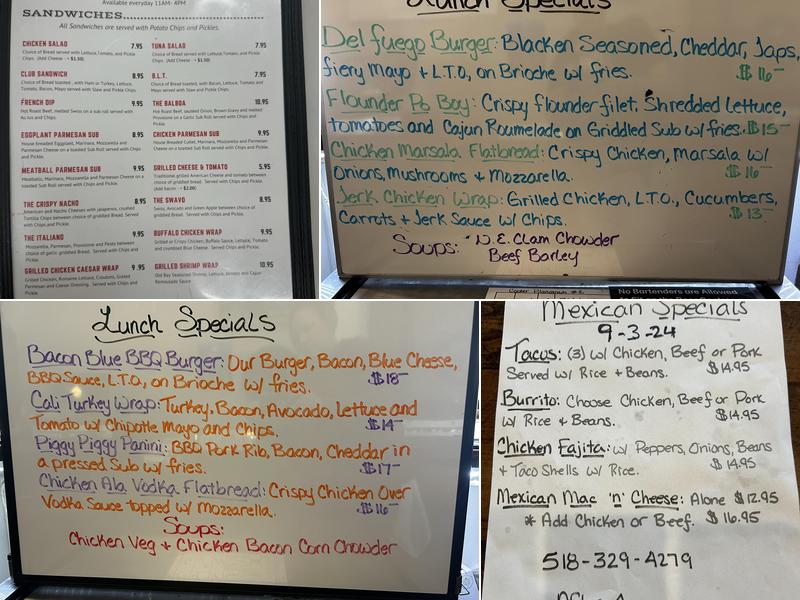 Available everyday 11AM- 4PM
SANDWICHES
All Sandwiches are served with Potato Chips and Pickles.
CHICKEN SALAD 7.95
Choice of Bread served with Lettuce, Tomato, and Pickle
Chips. (Add Cheese - +$1.50)
CLUB SANDWICH 8.95
Choice of Bread toasted, with Ham or Turkey, Lettuce,
Tomato, Bacon, Mayo served with Slaw and Pickle Chips.
FRENCH DIP 9.95
Hot Roast Beef, melted Swiss on a sub roll served with
Au Jus and Chips.
EGGPLANT PARMESAN SUB 8.95
House breaded Eggplant, Marinara, Mozzarella and
Parmesan Cheese on a toasted Sub Roll served with Chips
and Pickle.
MEATBALL PARMESAN SUB 9.95
Meatballs, Marinara, Mozzarella and Parmesan Cheese on a
toasted Sub Roll served with Chips and Pickle.
THE CRISPY NACHO 8.95
American and Nacho Cheeses with jalapenos, crushed
Tortilla Chips between choice of griddled Bread. Served
with Chips and Pickle.
THE ITALIANO 9.95
Mozzarella, Parmesan, Provolone and Pesto between
choice of garlic griddled Bread. Served with Chips and
Pickle.
GRILLED CHICKEN CAESAR WRAP 9.95
Grilled Chicken, Romaine Lettuce, Croutons, Grated
Parmesan and Caesar Dressing. Served with Chips and
Pickle.
TUNA SALAD 7.95
Choice of Bread served with Lettuce, Tomato, and Pickle
Chips. (Add Cheese - +$1.50)
B.L.T. 7.95
Choice of Bread toasted, with Bacon, Lettuce, Tomato and
Mayo served with Slaw and Pickle Chips.
THE BALBOA 10.95
Hot Roast Beef, sauteed Onion, Brown Gravy and melted
Provolone on a Garlic Sub Roll served with Chips and
Pickle.
CHICKEN PARMESAN SUB 9.95
House Breaded Cutlet, Marinara, Mozzarella and Parmesan
Cheese on a toasted Sub Roll. Served with Chips and
Pickle.
GRILLED CHEESE & TOMATO 5.95
Traditional grilled American Cheese and tomato between
choice of griddled bread. Served with Chips and Pickle.
(Add bacon - +$2.00)
THE SWAVO 8.95
Swiss, Avocado and Green Apple between choice of
griddled Bread. Served with Chips and Pickle.
BUFFALO CHICKEN WRAP 9.95
Grilled or Crispy Chicken, Buffalo Sauce, Lettuce, Tomato
and crumbled Blue Cheese. Served with Chips and Pickle.
GRILLED SHRIMP WRAP 10.95
Old Bay Seasoned Shrimp, Lettuce, Tomato and Cajun
Remoulade Sauce
Lunch Specials
Del fuego Burger: Blacken Seasoned, Cheddar, Japs,
fiery Mayo + L.T.O, on Brioche w/ fries. $16-
Flounder Po Boy: Crispy flounder filet. Shredded lettuce,
tomatoes and Cajun Roumelade on Griddled Sub w/ fries. $15-
Chicken Marsala Flatbread: Crispy Chicken, Marsala w/
Onions, Mushrooms + Mozzarella. $16-
Jerk Chicken Wrap: Grilled Chicken, L.T.O., Cucumbers,
Carrots + Jerk Sauce w/ Chips. $13-
Soups: N.E. Clam Chowder
Beef Barley
No Bartenders are Allowed
Lunch Specials
Bacon Blue BBQ Burger: Our Burger, Bacon, Blue Cheese,
BBQ Sauce, L.T.O, on Brioche w/ fries. $18-
Cali Turkey Wrap: Turkey, Bacon, Avocado, Lettuce and
Tomato w/ Chipotle Mayo and Chips. $14-
Piggy Piggy Panini: BBQ Pork Rib, Bacon, Cheddar in
a pressed Sub w/ fries. $17-
Chicken Ala Vodka Flatbread: Crispy Chicken Over
Vodka Sauce topped w/ Mozzarella. $16-
Soups:
Chicken Veg + Chicken Bacon Corn Chowder
Mexican Specials
9-3-24
Tacos: (3) w/ Chicken, Beef or Pork
Served w/ Rice + Beans. $14.95
Burrito: Choose Chicken, Beef or Pork
w/ Rice + Beans. $14.95
Chicken Fajita: w/ Peppers, Onions, Beans
+ Taco Shells w/ Rice. $14.95
Mexican Mac 'n' Cheese: Alone $12.95
* Add Chicken or Beef. $16.95
518-329-4279